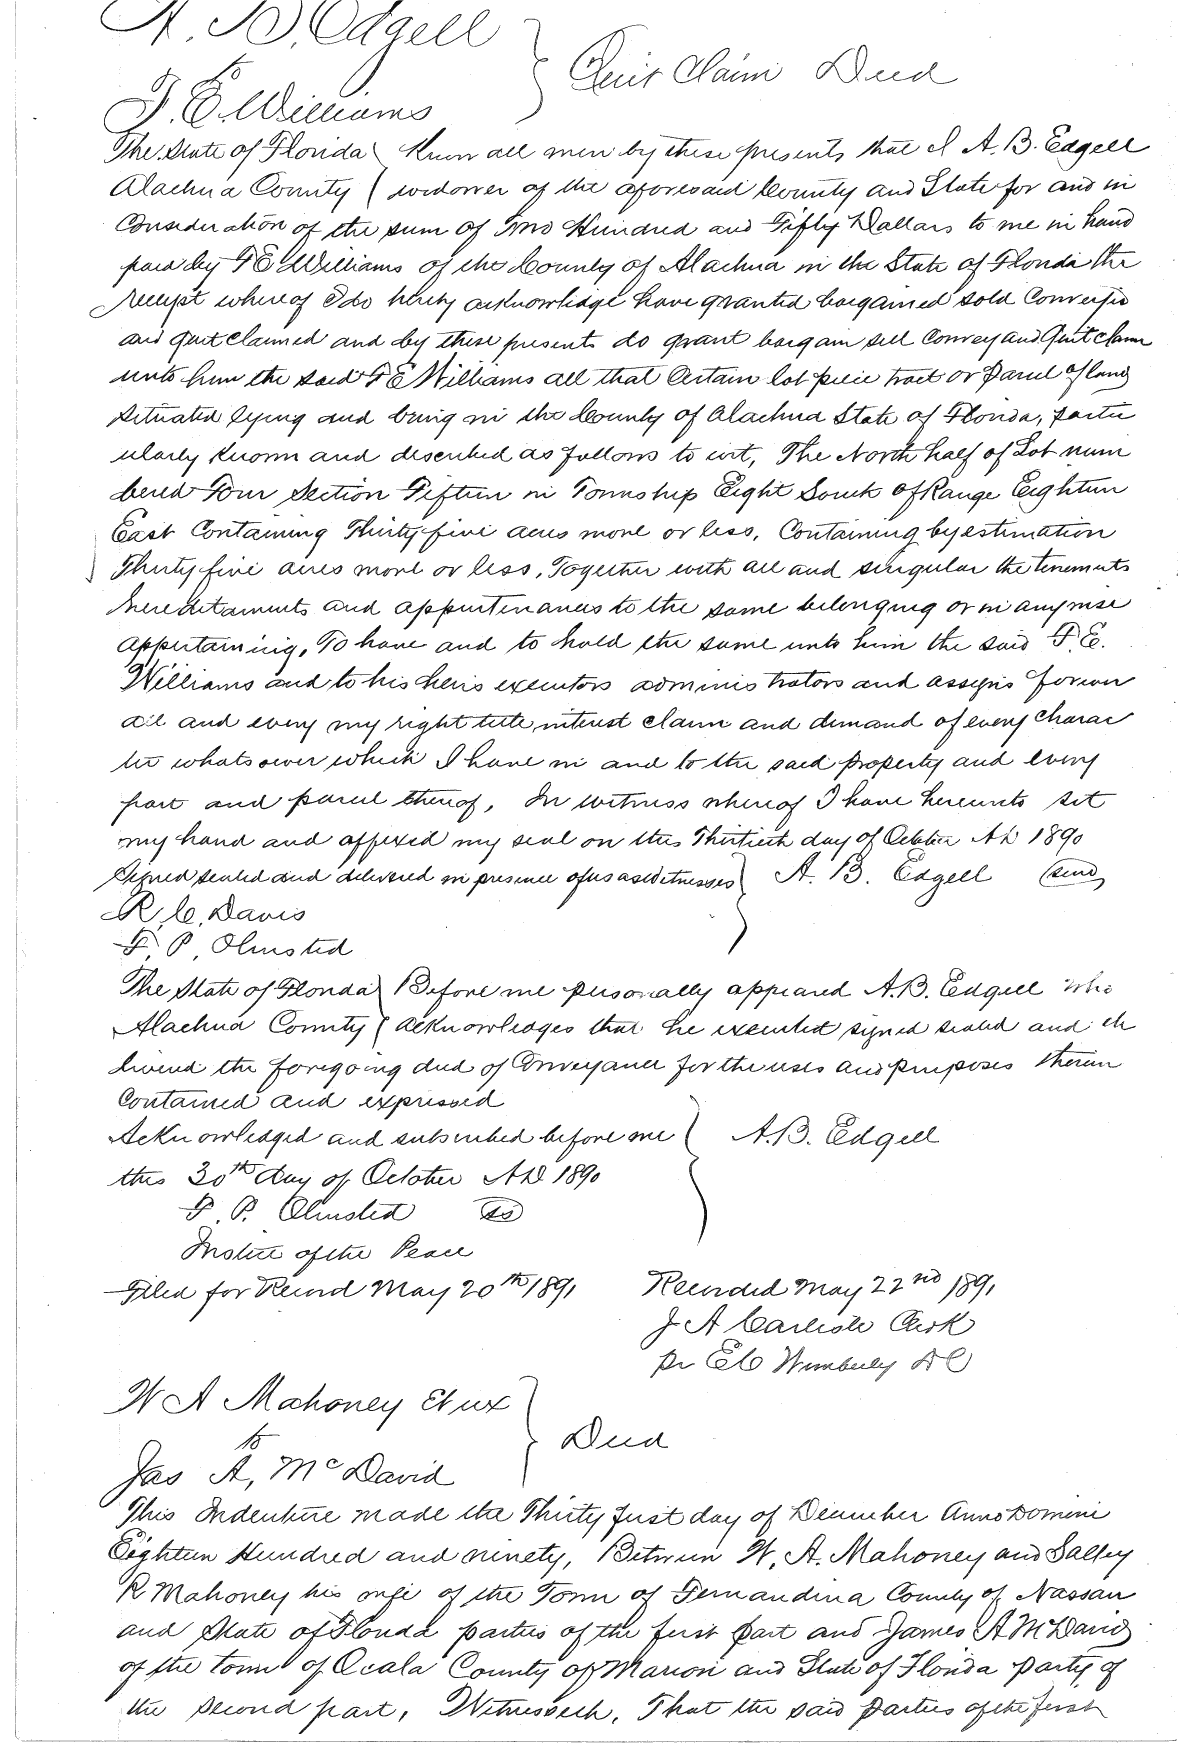 A. B. Edgell
to
F. E. Williams
Quit Claim Deed
The State of Florida ( Know all men by these presents that I A. B. Edgell
Alachua County ( widower of the aforesaid County and State for and in
Consideration of the sum of Two Hundred and Fifty Dollars to me in hand
paid by F E Williams of the County of Alachua in the State of Florida the
receipt whereof I do hereby acknowledge have granted bargained sold Conveyed
and quit claimed and by these presents do grant bargain sell Convey and Quit claim
unto him the said F E Williams all that Certain lot piece tract or Parcel of land
Situated lying and being in the County of Alachua State of Florida, partic
ularly Known and described as follows to wit, The North half of Lot num
bered Four Section Fifteen in Township Eight South of Range Eighteen
East Containing Thirty five acres more or less, Containing by estimation
Thirty five acres more or less, Together with all and singular the tenements
hereditaments and appurtenances to the same belonging or in anywise
appertaining, To have and to hold the same unto him the said F. E.
Williams and to his heirs executors administrators and assigns forever
all and every my right title, interest claim and demand of every Charac
ter whatsoever which I have in and to the said property and every
part and parcel thereof, In witness whereof I have hereunto set
my hand and affixed my seal on this Thirtieth day of October AD 1890
Signed sealed and delivered in presence of us as witnesses ) A. B. Edgell (Seal)
R. C. Davis
F. P. Olmsted
The State of Florida ) Before me personally appeared A. B. Edgell who
Alachua County ( acknowledges that he executed signed sealed and de
livered the foregoing deed of Conveyance for the uses and purposes therein
Contained and expressed
Acknowledged and subscribed before me ( A. B. Edgell
this 30th day of October AD 1890
F. P. Olmsted
Justice of the Peace
Filed for Record May 20th 1891
Recorded May 22nd 1891
J A Carlisle Clerk
pr E C Wimberly D C
W A Mahoney Et ux
to
Jas A, McDavid
Deed
This Indenture made the Thirty first day of December Anno Domini
Eighteen Hundred and ninety, Between W. A. Mahoney and Salley
R Mahoney his wife of the Town of Fernandina County of Nassau
and State of Florida parties of the first part and James A McDavid
of the town of Ocala County of Marion and State of Florida party of
the second part, Witnesseth, That the said parties of the first